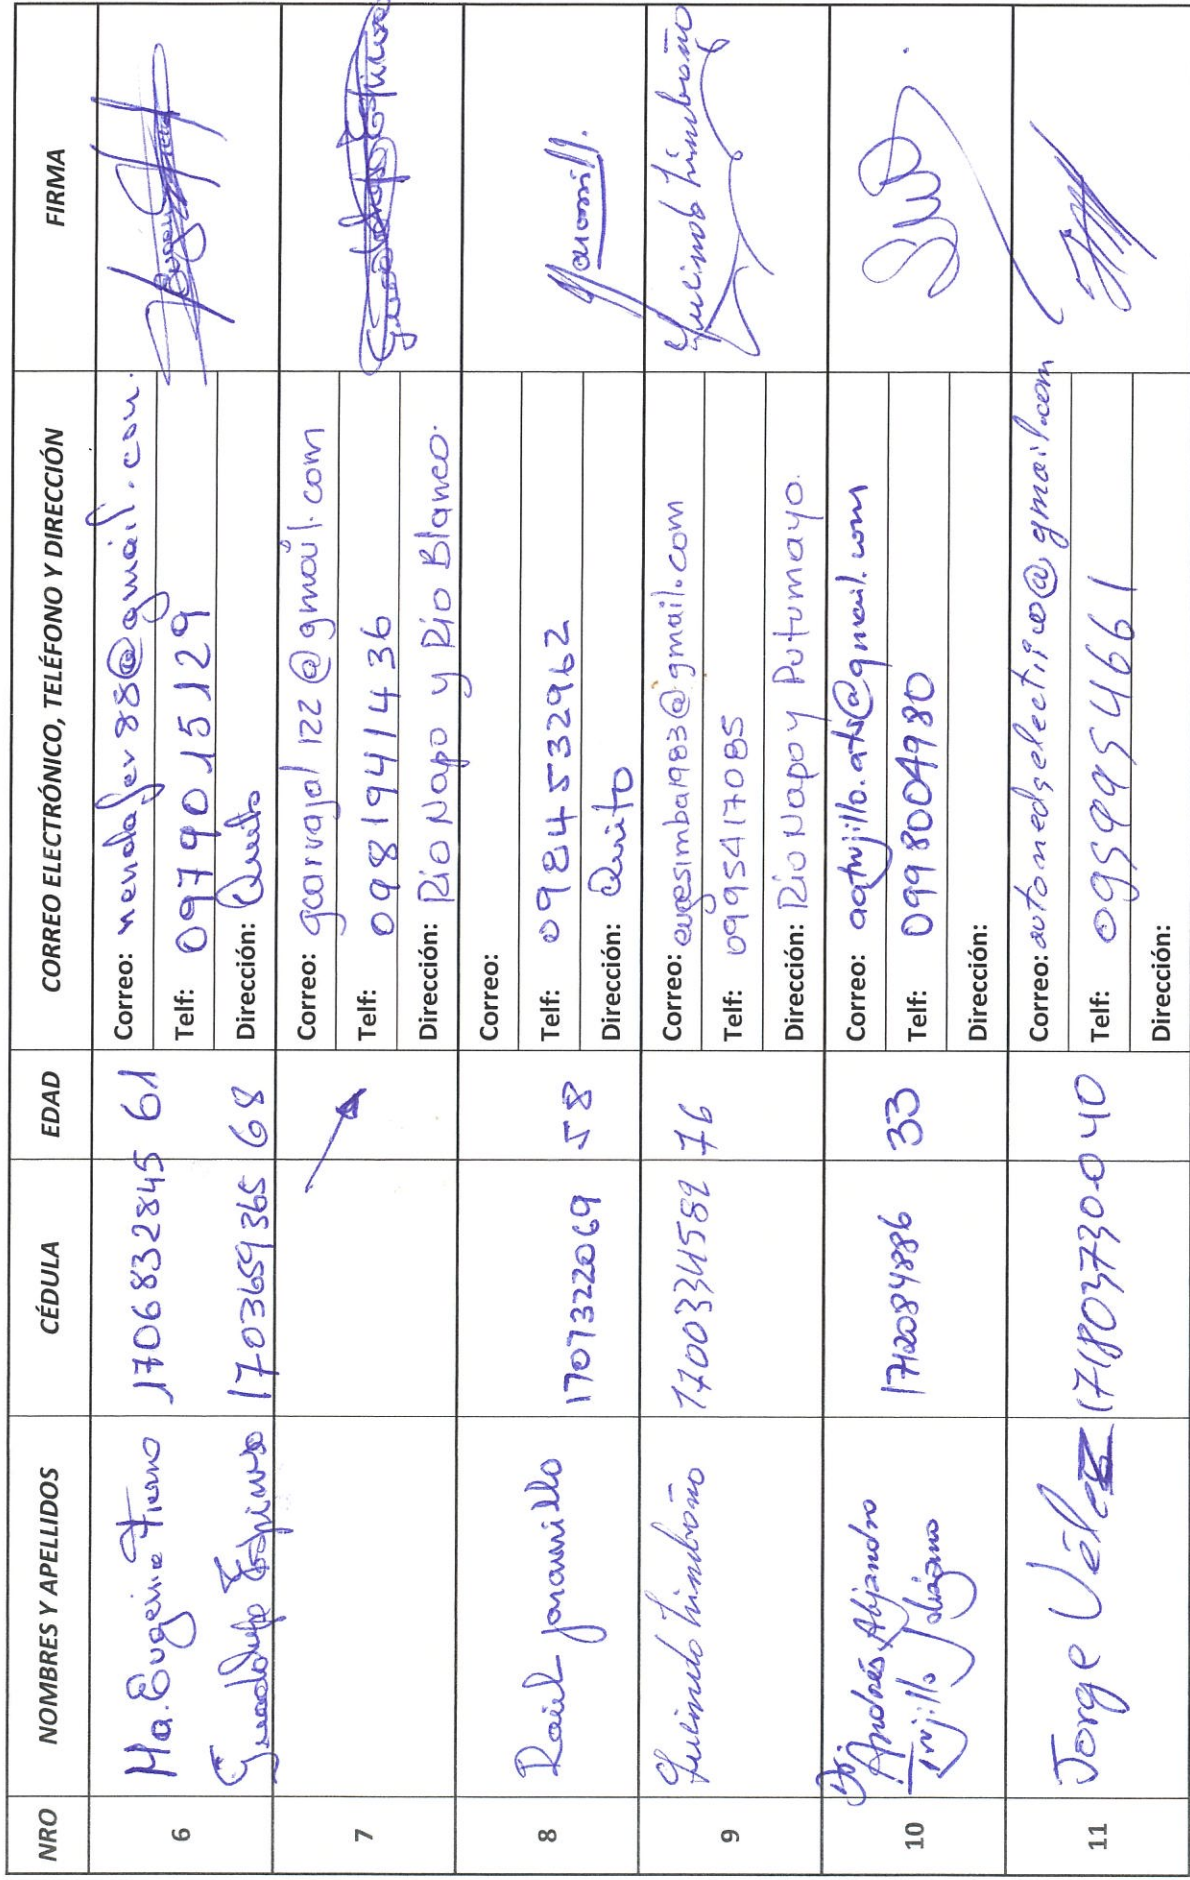 NRO NOMBRES Y APELLIDOS CÉDULA EDAD CORREO ELECTRÓNICO, TELÉFONO Y DIRECCIÓN FIRMA
6 Ma. Eugenia Fierro 1706832845 61
Correo: nenafer88@gmail.com.
Telf: 0979015129
Dirección: Quito
Guadalupe Espinosa 1703659365 68
7
Correo: gcarvajal122@gmail.com
Telf: 0981941436
Dirección: Río Napo y Río Blanco.
8 Raúl Jaramillo 1707322069 58
Correo:
Telf: 0984532962
Dirección: Quito
9 1700334582 76
Correo: eugesimba1983@gmail.com
Telf: 0995417085
Dirección: Río Napo y Putumayo.
10 Dr. Andrés Alejandro
Trujillo
1712084886 33
Correo: aatrujillo.ats@gmail.com
Telf: 0998004980
Dirección:
11 Jorge Vélez 1718037300 40
Correo:
Telf: 0959954661
Dirección: